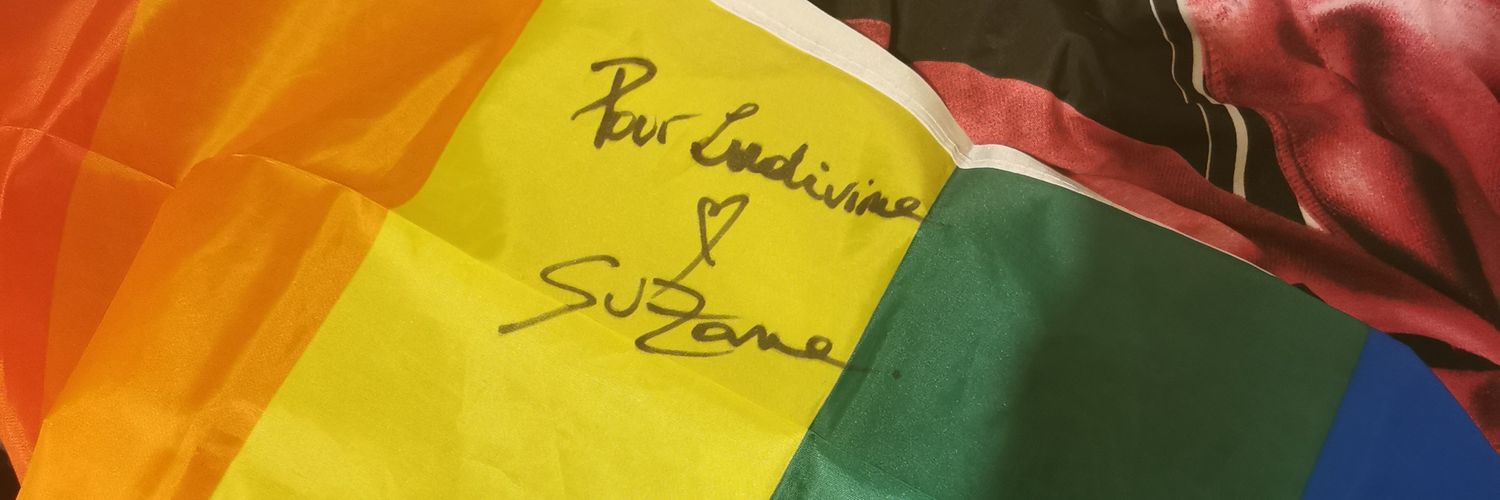 Pour Ludivine
♡
Suzane